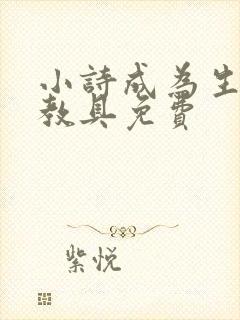 小詩成為生
教具免費
紫悅